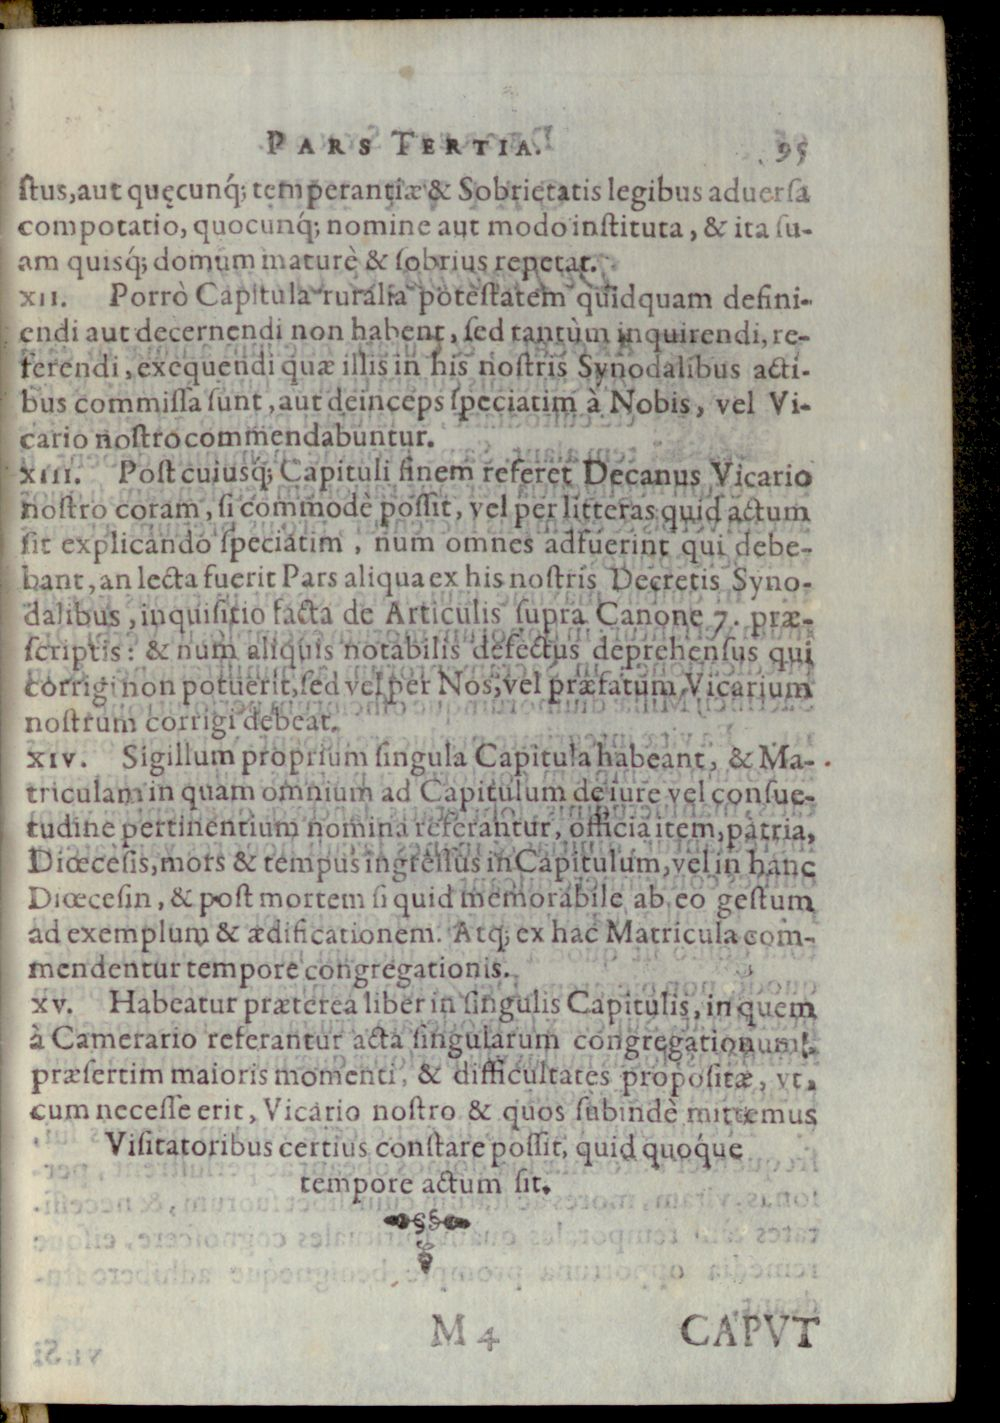 PARS TERTIA. 95
ſtus, aut quęcunq́; temperantiæ & Sobrietatis legibus aduerſa
compotatio, quocunq́; nomine aut modo inſtituta, & ita ſu-
am quisq́; domum maturè & ſobrius repetat.
XII. Porrò Capitula ruralia poteſtatem quidquam defini-
endi aut decernendi non habent, ſed tantùm inquirendi, re-
ferendi, exequendi quæ illis in his noſtris Synodalibus acti-
bus commiſſa ſunt, aut deinceps ſpeciatim à Nobis, vel Vi-
cario noſtro commendabuntur.
XIII. Poſt cuiusq́; Capituli finem referet Decanus Vicario
noſtro coram, ſi commodè poſſit, vel per litteras quid actum
ſit explicando ſpeciatim, num omnes adfuerint qui debe-
bant, an lecta fuerit Pars aliqua ex his noſtris Decretis Syno-
dalibus, inquiſitio facta de Articulis ſupra Canone 7. præ-
ſcriptis: & num aliquis notabilis defectus deprehenſus qui
corrigi non potuerit, ſed vel per Nos, vel præfatum Vicarium
noſtrum corrigi debeat.
XIV. Sigillum proprium ſingula Capitula habeant, & Ma-
triculam in quam omnium ad Capitulum de iure vel conſue-
tudine pertinentium nomina referantur, officia item, patria,
Diœceſis, mors & tempus ingreſſus in Capitulum, vel in hanc
Diœceſin, & poſt mortem ſi quid memorabile ab eo geſtum
ad exemplum & ædificationem. Atq; ex hac Matricula com-
mendentur tempore congregationis.
XV. Habeatur præterea liber in ſingulis Capitulis, in quem
à Camerario referantur acta ſingularum congregationum,
præſertim maioris momenti, & difficultates propoſitæ, vt,
cum neceſſe erit, Vicario noſtro & quos ſubindè mittemus
Viſitatoribus certius conſtare poſſit, quid quoq́ue
tempore actum ſit.
M 4 CAPVT